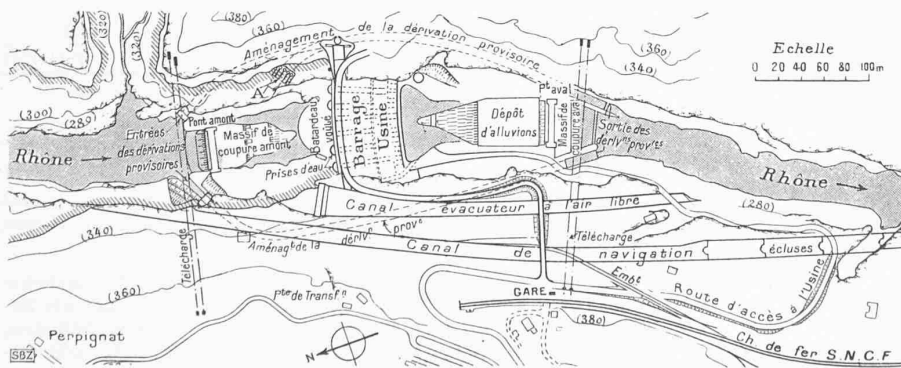 (320)
(320)
(380)
(360)
Aménagement de la dérivation provisoire
(360)
(340)
Echelle
0 20 40 60 80 100m
(300)
(280)
A
Pont amont
Entrées des dérivations provisoires
Massif de coupure amont
Batardeau voûte
Barrage
Usine
Dépôt d'alluvions
Pt aval
Massif de coupure aval
Sortie des dérivns provres
Rhône
Rhône
Prises d'eau
Canal évacuateur à l'air libre
(280)
(340)
Aménagt de la dérivn prove
Canal de navigation
écluses
Téléchargе
Télécharge
(360)
Pte de Transfn
GARE
Embt
Route d'accès à l'Usine
(380)
Ch. de fer S.N.C.F
Perpignat
N
SBZ